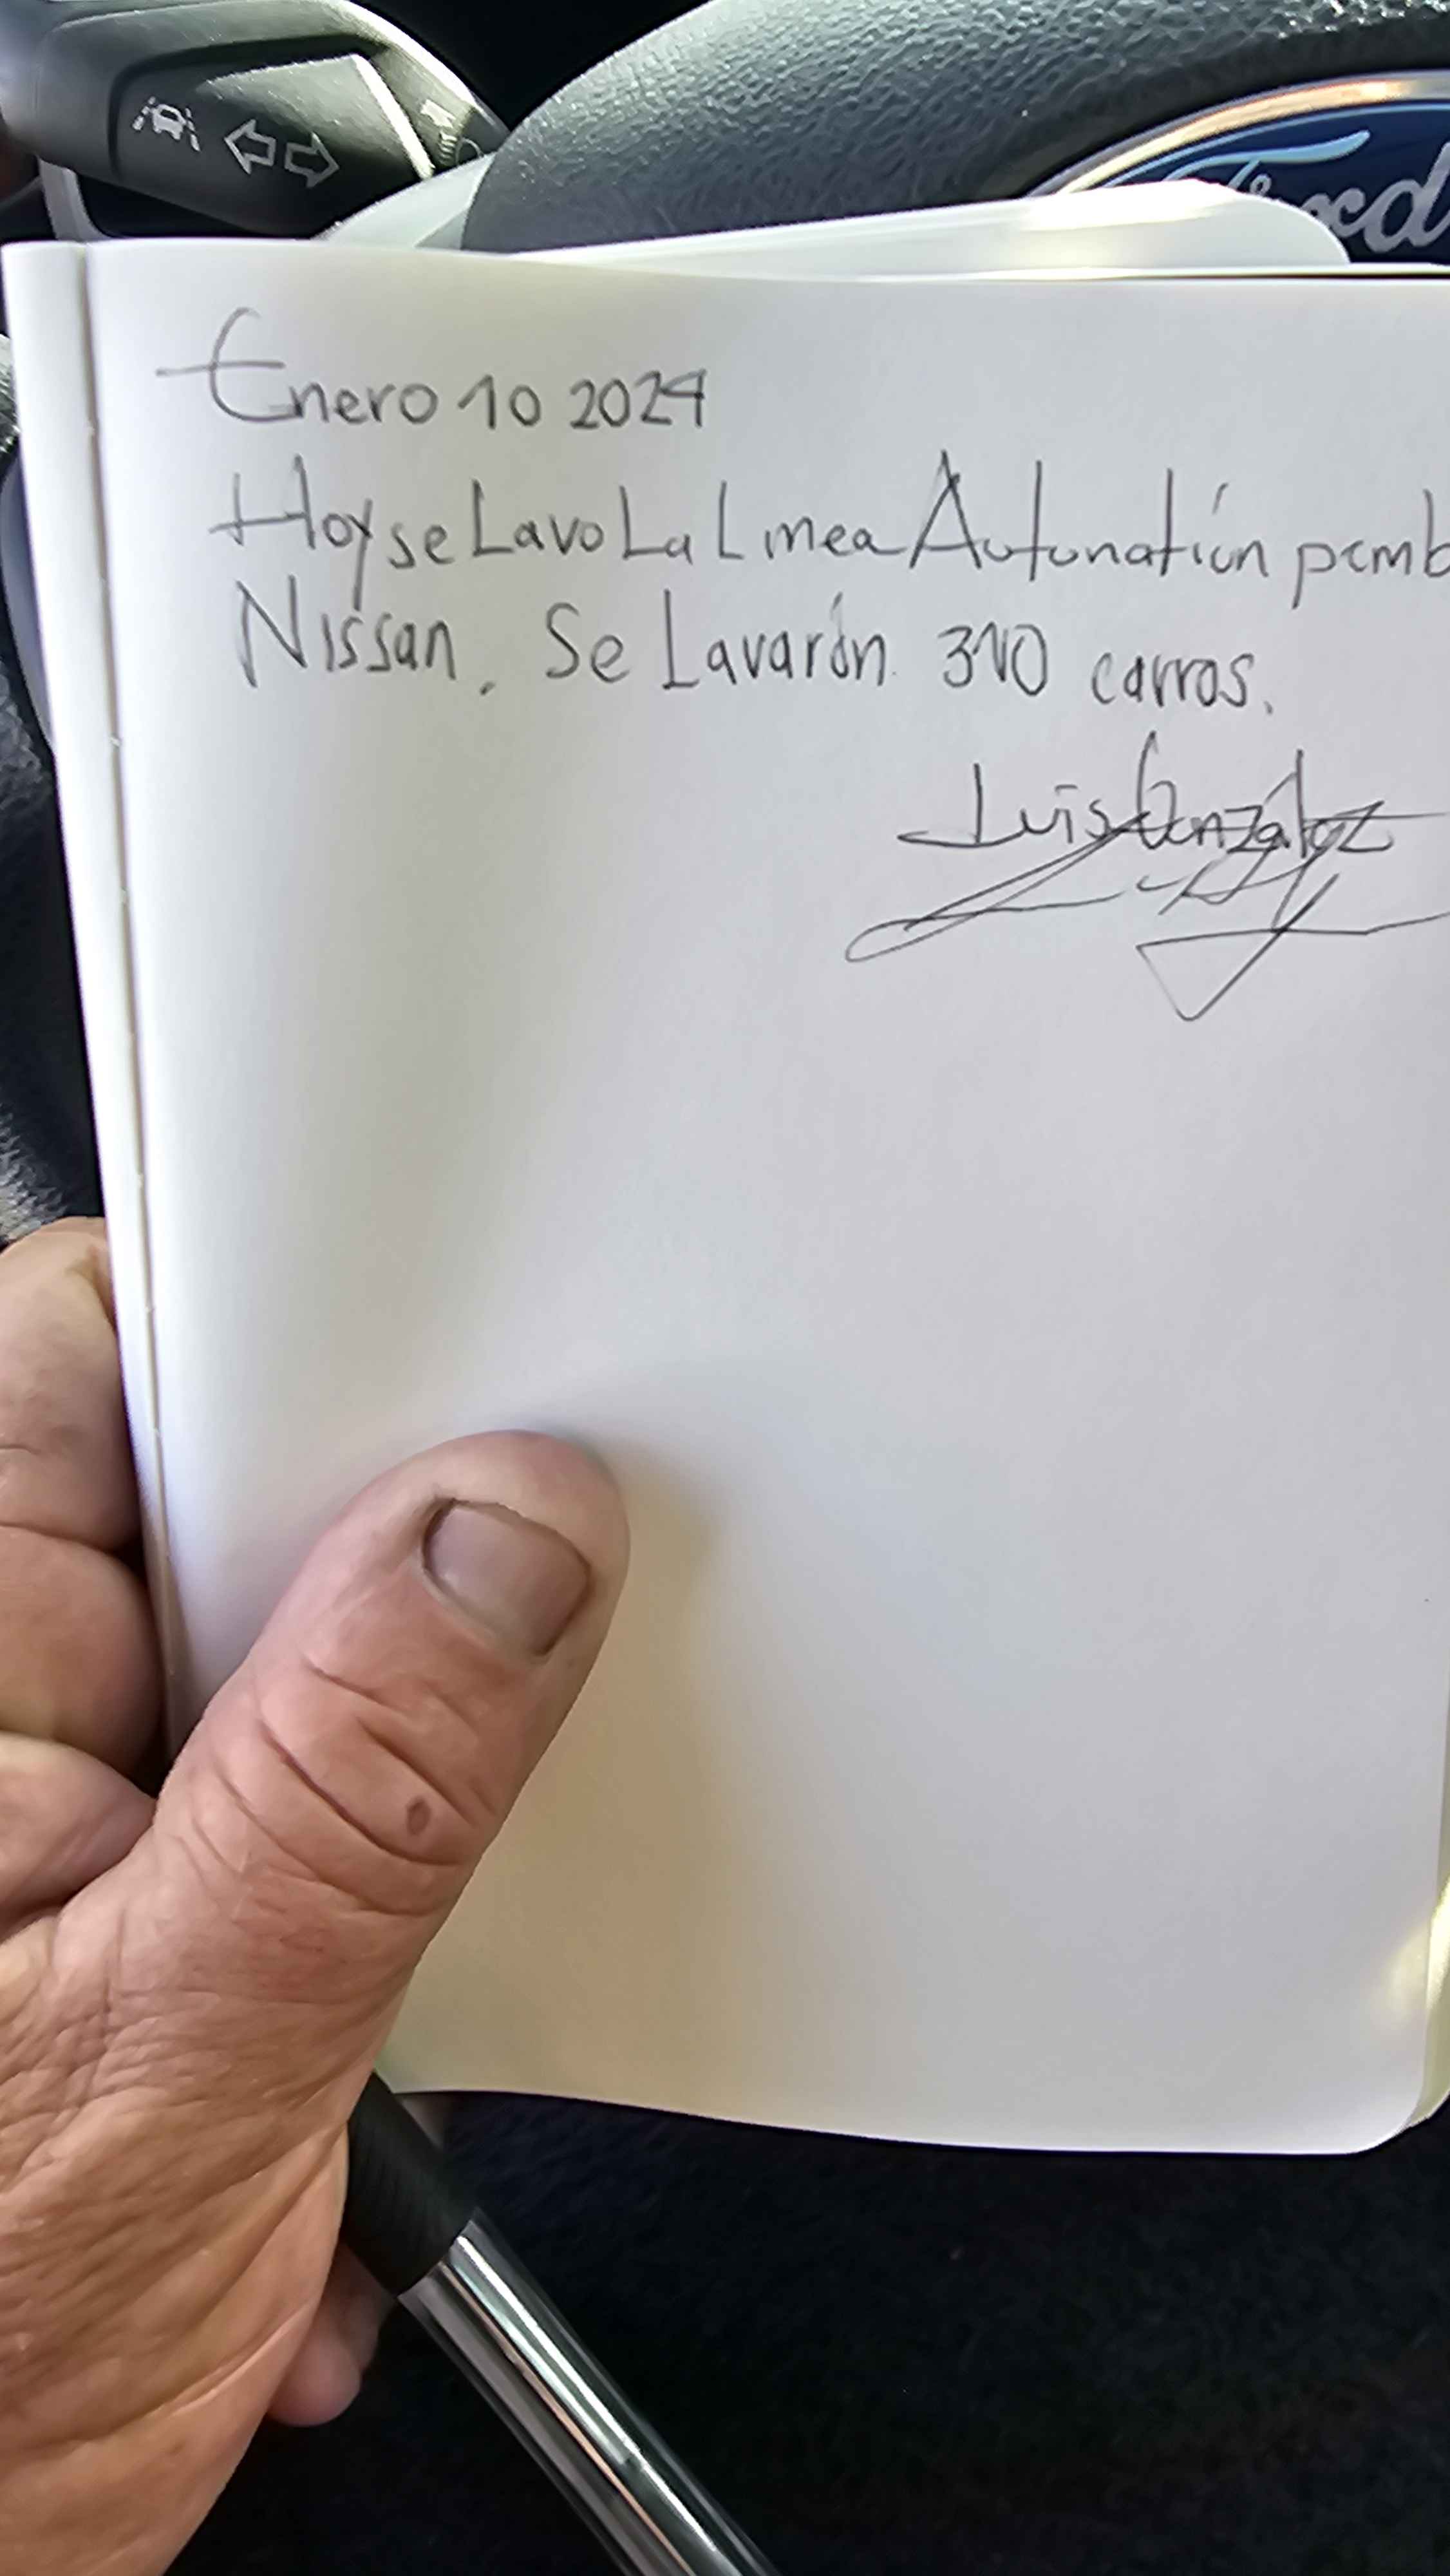 Ford
Enero 10 2024
Hoy se Lavo La Linea Autonatión pemb
Nissan. Se Lavarón 310 carros.
Luis González